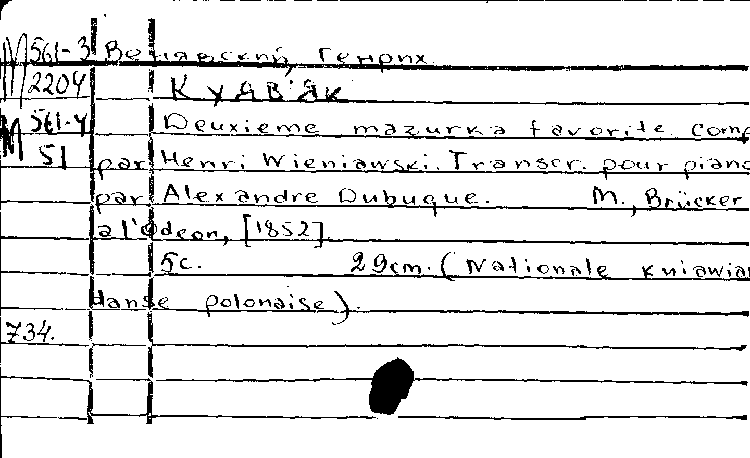 M 561-3 Венявский, Генрих
2204 Кудв'як
M 561-4 Deuxieme mazurka favorite comp
51 par Henri Wieniawski. Transcr. pour piano
par Alexandre Dubuque. M., Brücker
a l'Odeon, [1852].
5c. 29cm. (Nationale kuiawia
danse polonaise).
734.